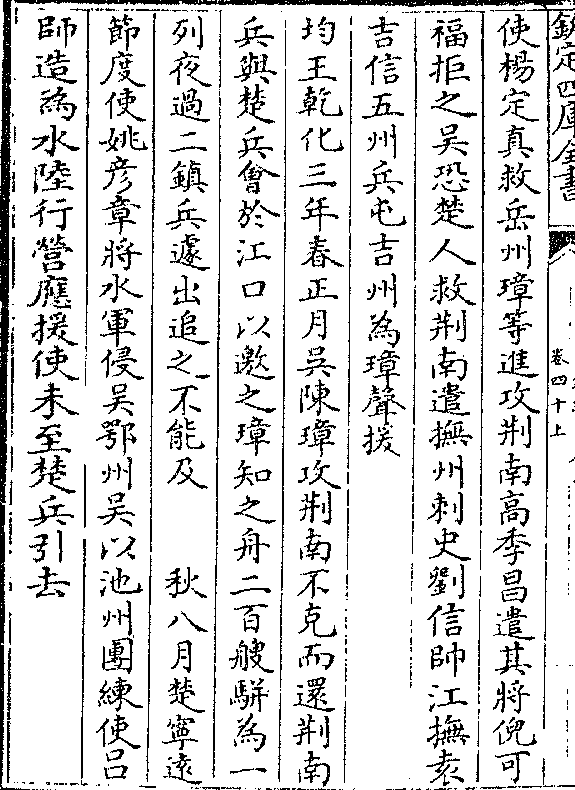 欽定四庫全書
卷四十上
使楊定真救岳州璋等進攻荆南高季昌遣其將倪可
福拒之吴恐楚人救荆南遣撫州刺史劉信帥江撫袁
吉信五州兵屯吉州為璋聲援
均王乾化三年春正月吴陳璋攻荆南不克而還荆南
兵與楚兵會於江口以邀之璋知之舟二百艘駢為一
列夜過二鎮兵遽出追之不能及　秋八月楚寧遠
節度使姚彦章將水軍侵吴鄂州吴以池州團練使吕
師造為水陸行營應援使未至楚兵引去